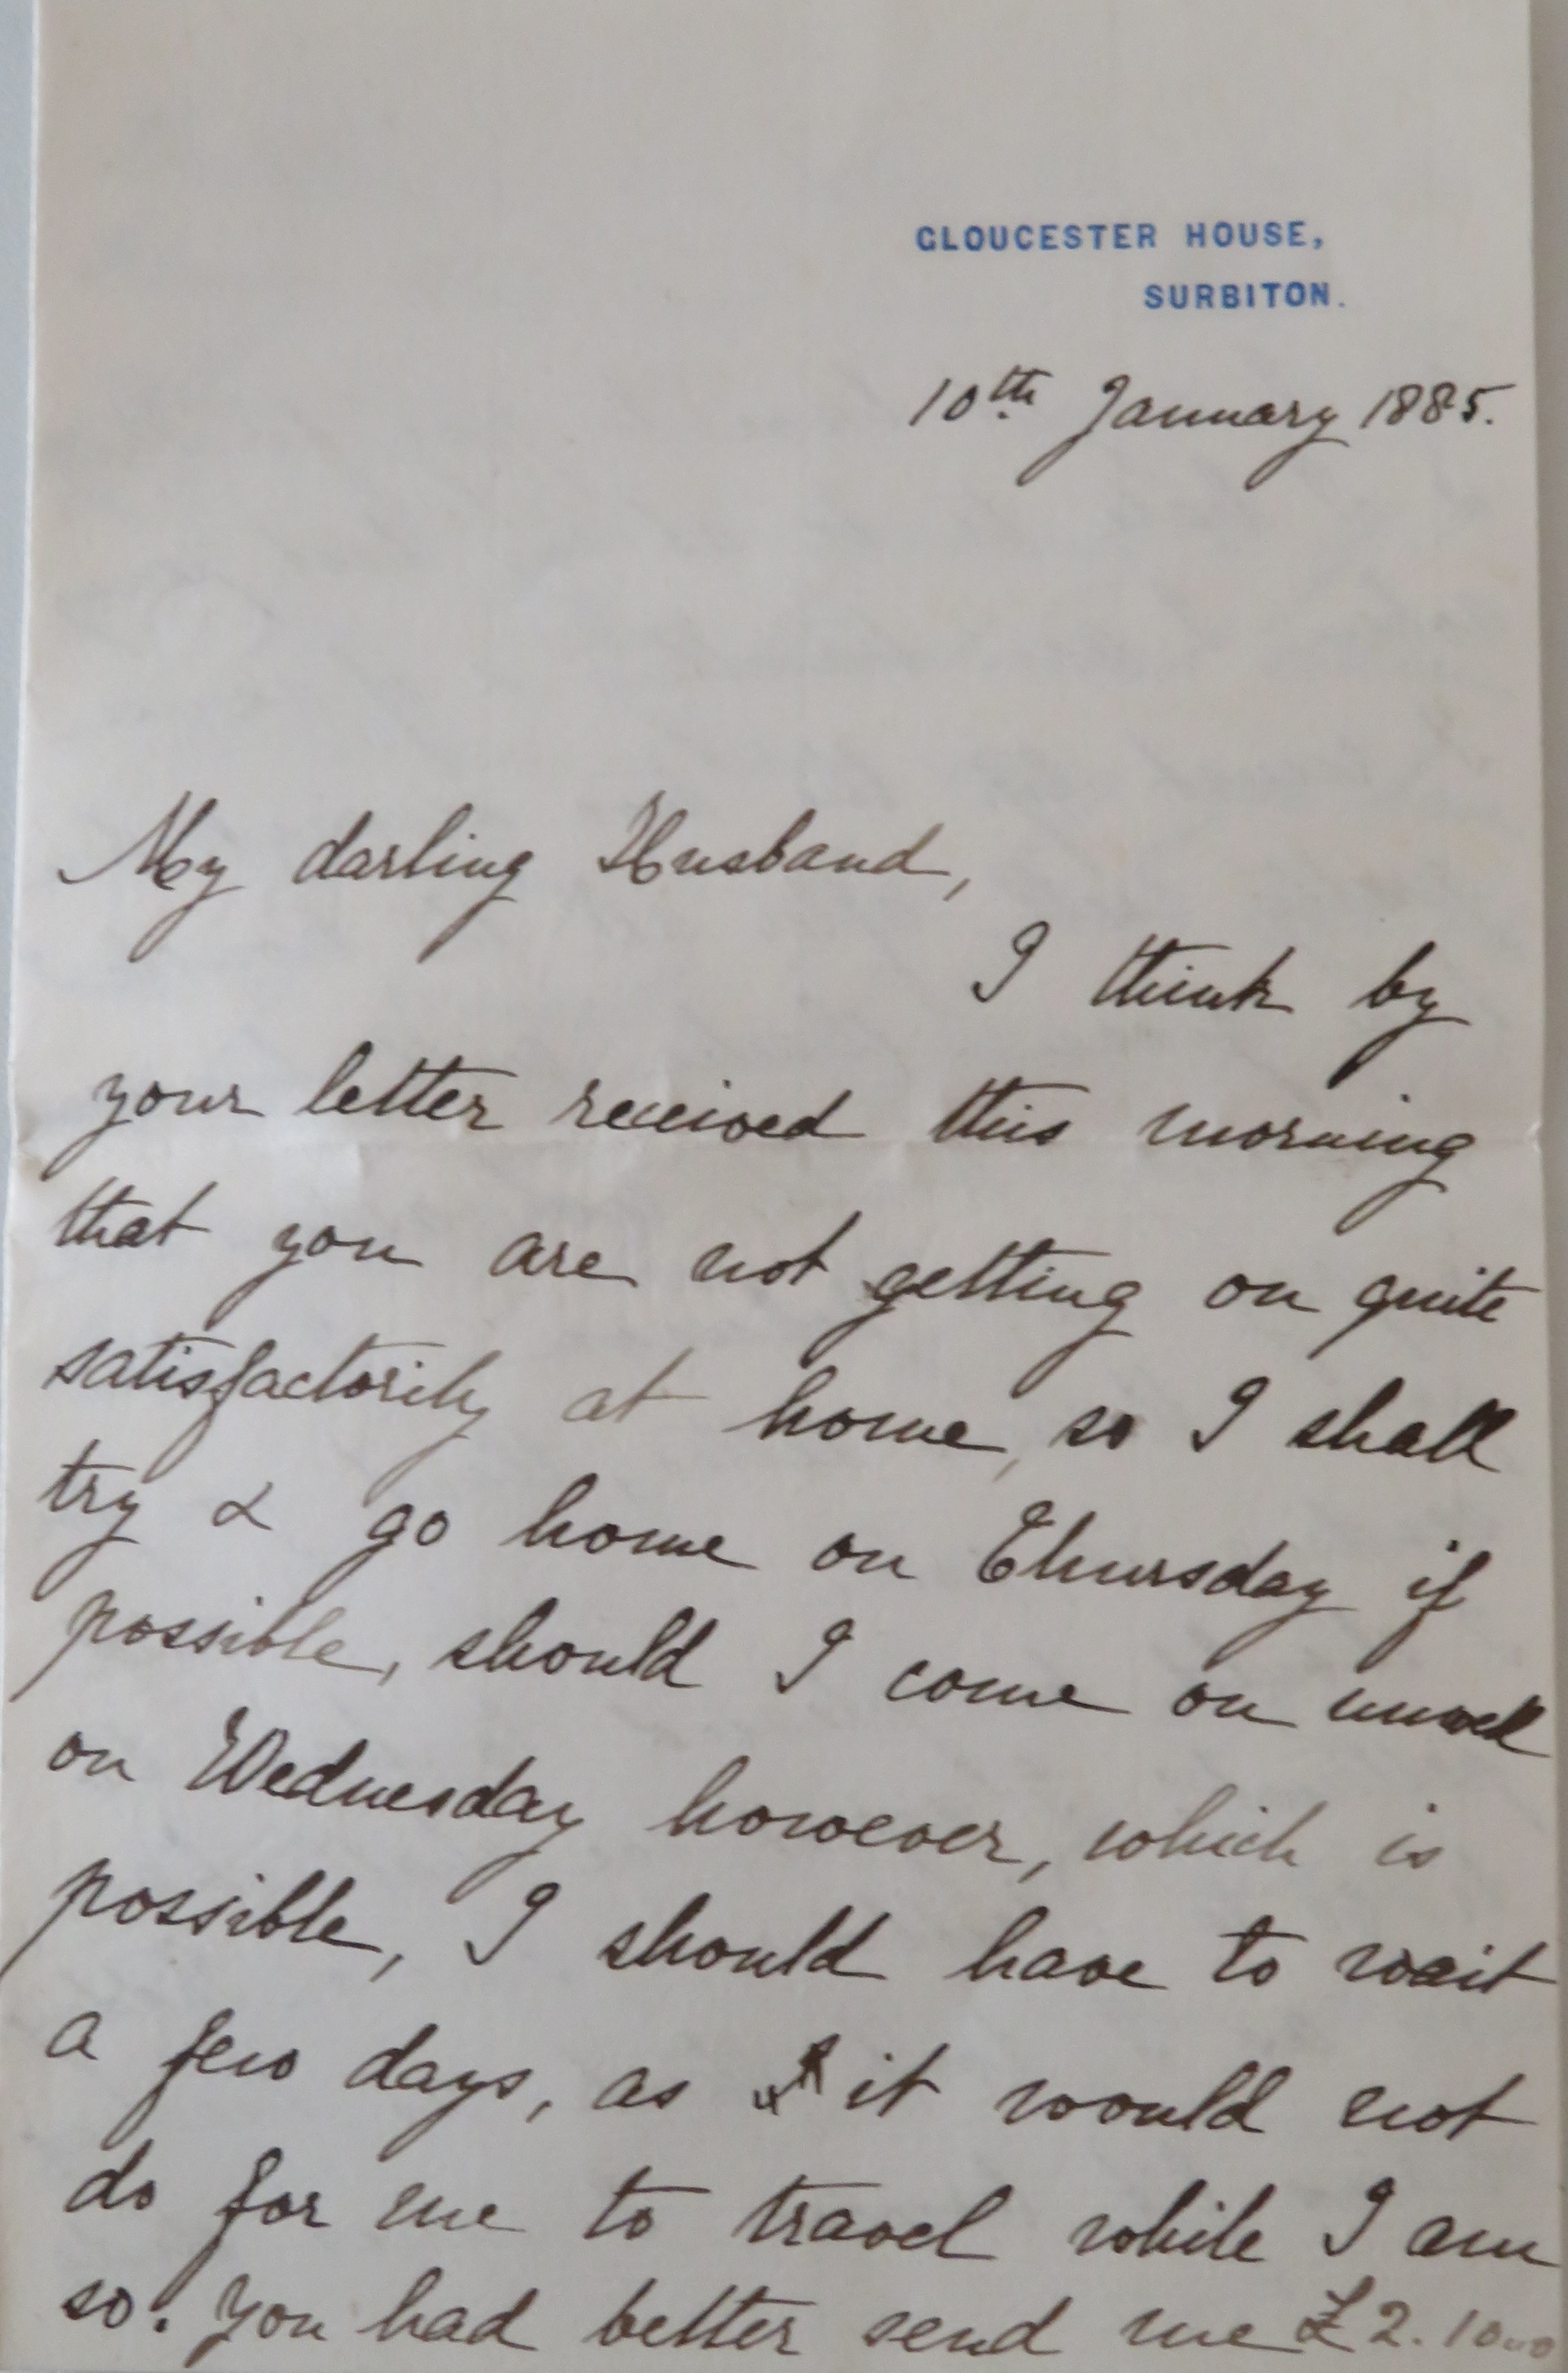 GLOUCESTER HOUSE,
SURBITON.
10th January 1885.
My darling Husband,
I think by
your letter received this morning
that you are not getting on quite
satisfactorily at home, so I shall
try & go home on Thursday if
possible, should I come on unwell
on Wednesday however, which is
possible, I should have to wait
a few days, as it would not
do for me to travel while I am
so. You had better send me £2.10